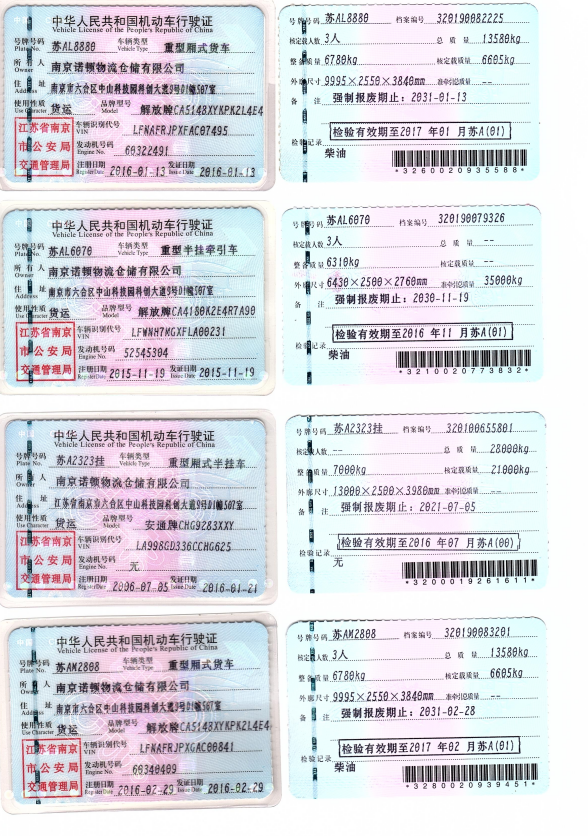 中华人民共和国机动车行驶证
Vehicle License of the People's Republic of China
号牌号码 Plate No. 苏AL8880 车辆类型 Vehicle Type 重型厢式货车
所有人 Owner 南京诺顿物流仓储有限公司
住址 Address 南京市六合区中山科技园科创大道9号D1幢507室
使用性质 Use Character 货运 品牌型号 Model 解放牌CA5148XYKPK2L4E4
江苏省南京市公安局交通管理局
车辆识别代号 VIN LFNAFRJPXFAC07495
发动机号码 Engine No. 60322491
注册日期 Register Date 2016-01-13 发证日期 Issue Date 2016-01-13
号牌号码 苏AL8880 档案编号 320190082225
核定载人数 3人 总质量 13580kg
整备质量 6780kg 核定载质量 6605kg
外廓尺寸 9995×2550×3840mm 准牵引总质量 --
备注 强制报废期止：2031-01-13
检验有效期至2017年01月苏A(01)
检验记录
柴油
*3260020935588*
中华人民共和国机动车行驶证
Vehicle License of the People's Republic of China
号牌号码 Plate No. 苏AL6070 车辆类型 Vehicle Type 重型半挂牵引车
所有人 Owner 南京诺顿物流仓储有限公司
住址 Address 南京市六合区中山科技园科创大道9号D1幢507室
使用性质 Use Character 货运 品牌型号 Model 解放牌CA4180K2E4R7A90
江苏省南京市公安局交通管理局
车辆识别代号 VIN LFWNH7KGXFLA00231
发动机号码 Engine No. 52545304
注册日期 Register Date 2015-11-19 发证日期 Issue Date 2015-11-19
号牌号码 苏AL6070 档案编号 320190079326
核定载人数 3人 总质量 --
整备质量 6310kg 核定载质量 --
外廓尺寸 6430×2500×2760mm 准牵引总质量 35000kg
备注 强制报废期止：2030-11-19
检验有效期至2016年11月苏A(01)
检验记录
柴油
*3210020773832*
中华人民共和国机动车行驶证
Vehicle License of the People's Republic of China
号牌号码 Plate No. 苏A2323挂 车辆类型 Vehicle Type 重型厢式半挂车
所有人 Owner 南京诺顿物流仓储有限公司
住址 Address 江苏省南京市六合区中山科技园科创大道9号D1幢507室
使用性质 Use Character 货运 品牌型号 Model 安通牌CHG9283XXY
江苏省南京市公安局交通管理局
车辆识别代号 VIN LA998GD336CCHG625
发动机号码 Engine No. 无
注册日期 Register Date 2006-07-05 发证日期 Issue Date 2016-01-21
号牌号码 苏A2323挂 档案编号 320100655801
核定载人数 -- 总质量 28000kg
整备质量 7000kg 核定载质量 21000kg
外廓尺寸 13000×2500×3980mm 准牵引总质量 --
备注 强制报废期止：2021-07-05
检验有效期至2016年07月苏A(00)
检验记录
无
*3200019261611*
中华人民共和国机动车行驶证
Vehicle License of the People's Republic of China
号牌号码 Plate No. 苏AM2808 车辆类型 Vehicle Type 重型厢式货车
所有人 Owner 南京诺顿物流仓储有限公司
住址 Address 南京市六合区中山科技园科创大道9号D1幢507室
使用性质 Use Character 货运 品牌型号 Model 解放牌CA5148XYKPK2L4E4
江苏省南京市公安局交通管理局
车辆识别代号 VIN LFNAFRJPXGAC00841
发动机号码 Engine No. 60340409
注册日期 Register Date 2016-02-29 发证日期 Issue Date 2016-02-29
号牌号码 苏AM2808 档案编号 320190083201
核定载人数 3人 总质量 13580kg
整备质量 6780kg 核定载质量 6605kg
外廓尺寸 9995×2550×3840mm 准牵引总质量 --
备注 强制报废期止：2031-02-28
检验有效期至2017年02月苏A(01)
检验记录
柴油
*3280020939451*